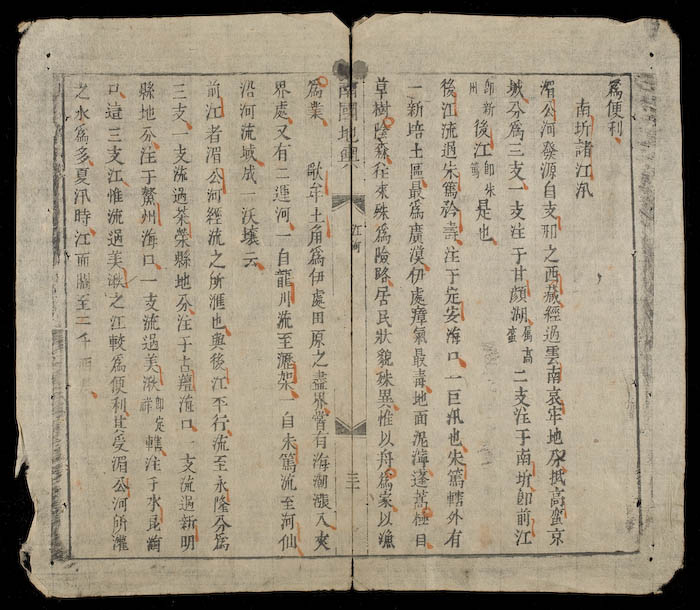 爲便利
南圻諸江汛
湄公河發源自支那之西藏經過雲南哀牢地分抵高蠻京
城分爲三支一支注于甘顔湖屬高蠻二支注于南圻卽前江
卽新州後江卽朱篤是也
後江流過朱篤矜壽注于定安海口一巨汛也朱篤轄外有
一新培土區最爲廣漠伊處瘴氣最毒地面泥濘蓬蒿極目
草樹陰森往來殊爲險略居民狀貌殊異惟以舟爲家以漁
南國地輿 江河 三十
爲業 歌牟土角爲伊處田原之盡界嘗有海潮漲入夾
界處又有二運河一自龍川流至瀝架一自朱篤流至河仙
沿河流域成二沃壤云
前江者湄公河經流之所滙也與後江平行流至永隆分爲
三支一支流過茶榮縣地分注于古口一支流過新明
縣地分注于鰲州海口一支流過美湫卽定祥轄注于水昆崙
口這三支江惟流過美湫之江較爲便利其受湄公河所灌
之水爲多夏汛時江面闊至二千西